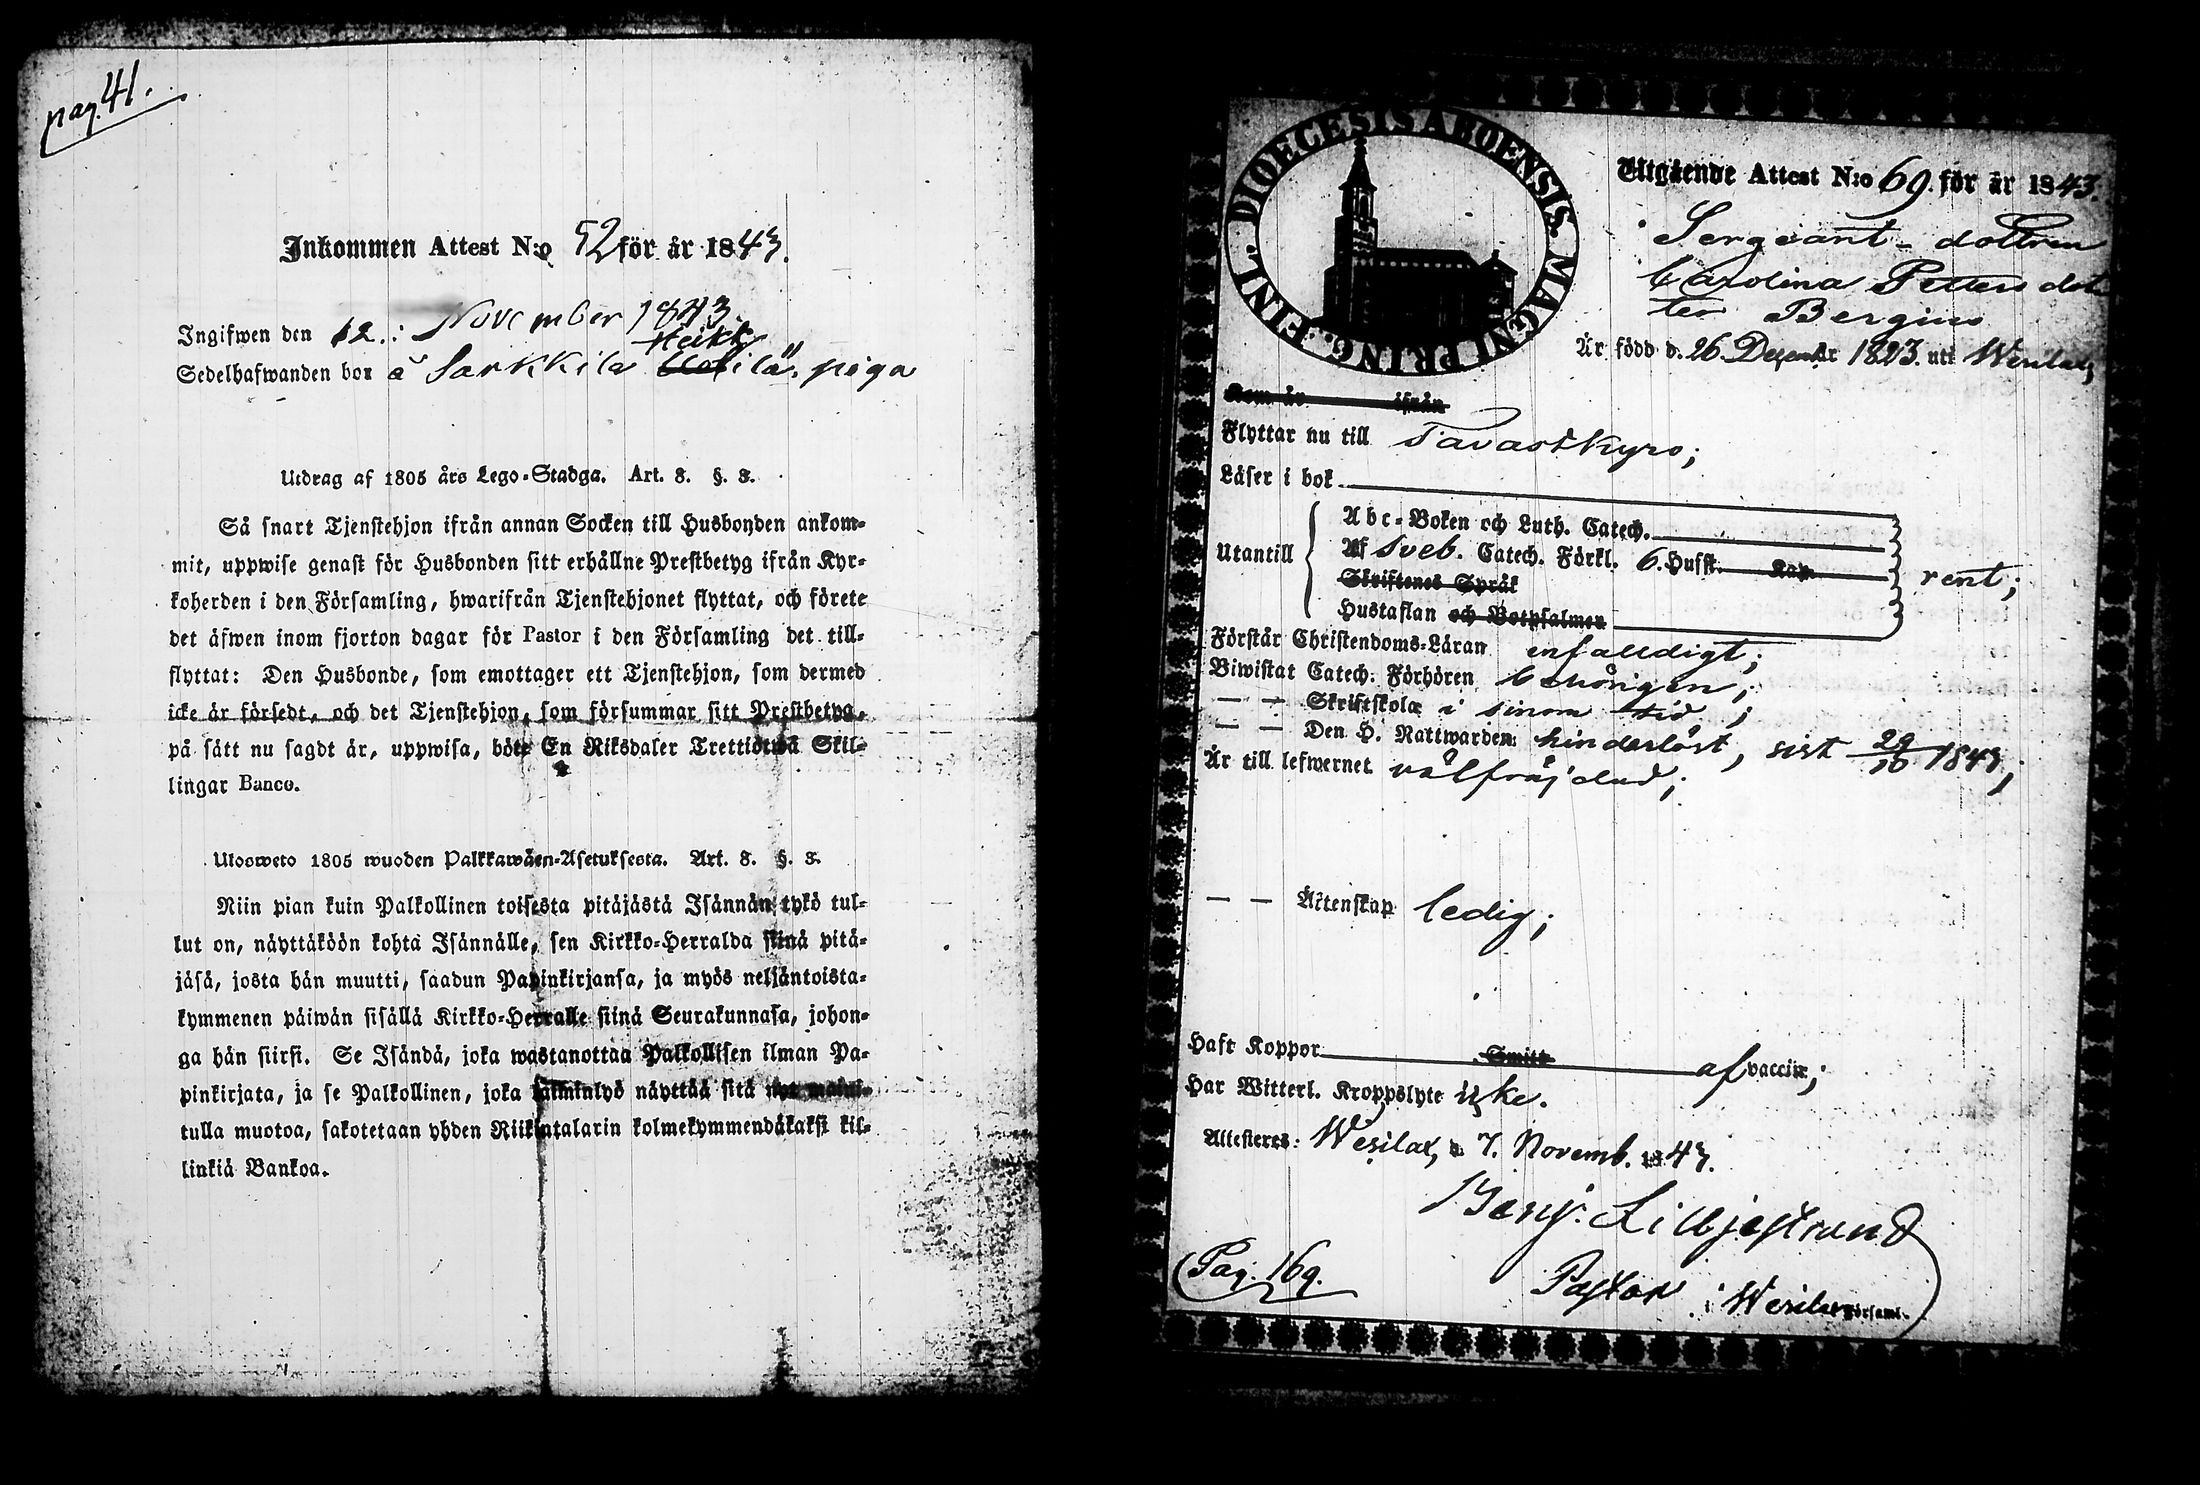 pag. 41.
Inkommen Attest N:o 52 för år 1843.
Ingifwen den 12.: November 1843.
Heikk
Sedelhafwanden bor å Sarkkila ilä. piga
Utdrag af 1805 års Lego-Stadga. Art. 8. §. 3.
Så snart Tjenstehjon ifrån annan Socken till Husbonden ankom-
mit, uppwise genast för Husbonden sitt erhållne Prestbetyg ifrån Kyr-
koherden i den Församling, hwarifrån Tjenstehjonet flyttat, och förete
det äfwen inom fjorton dagar för Pastor i den Församling det till-
flyttat: Den Husbonde, som emottager ett Tjenstehjon, som dermed
icke är försedt, och det Tjenstehjon, som försummar sitt Prestbetyg,
på sätt nu sagdt är, uppwisa, böte En Riksdaler Trettiotwå Skil-
lingar Banco.
Ulosweto 1805 wuoden Palkkawäen-Asetuksesta. Art. 8. §. 3.
Niin pian kuin Palkollinen toisesta pitäjästä Isännän tykö tul-
lut on, näyttäköön kohta Isännälle, sen Kirkko-Herralda siinä pitä-
jäsä, josta hän muutti, saadun Papinkirjansa, ja myös neljäntoista-
kymmenen päiwän sisällä Kirkko-Herralle siinä Seurakunnasa, johon-
ga hän siirsi. Se Isändä, joka wastanottaa Palkollisen ilman Pa-
pinkirjata, ja se Palkollinen, joka laiminlyö näyttää sitä nyt maini-
tulla muotoa, sakotetaan yhden Riikintalarin kolmekymmendäkaksi kil-
linkiä Bankoa.
DIOECESIS ABOENSIS. MAGNI PRING. FINL.
Utgående Attest N:o 69. för år 1843.
Sergeant-dottren
Carolina Petters dot
ter Bergius
Är född d. 26. Decemb:r 1823. uti Wesilax,
Kom år ifrån
Flyttar nu till Tavastkyro;
Läser i bok
Utantill
Abc-Boken och Luth. Catech.
Af Sveb. Catech. Förkl. 6. Husst. Kap.
Skriftenes Språk
Hustaflan och Botpsalmer
rent;
Förstår Christendoms-Läran enfalldigt;
Biwistat Catech. Förhören behörigen;
— — Skriftskolæ i sinom tid;
— — Den H. Nattwarden hinderlöst, sist 29/10 1843;
Är till lefwernet välfräjdad;
— — Äktenskap ledig;
Haft Koppor Smitt af vaccin;
Har Witterl. Kroppslyte icke.
Attesteres: Wesilax, d. 7. Novemb. 1843.
Benj. Lilljestrand
Pag. 169.
Pastor i Wesilax Församl.